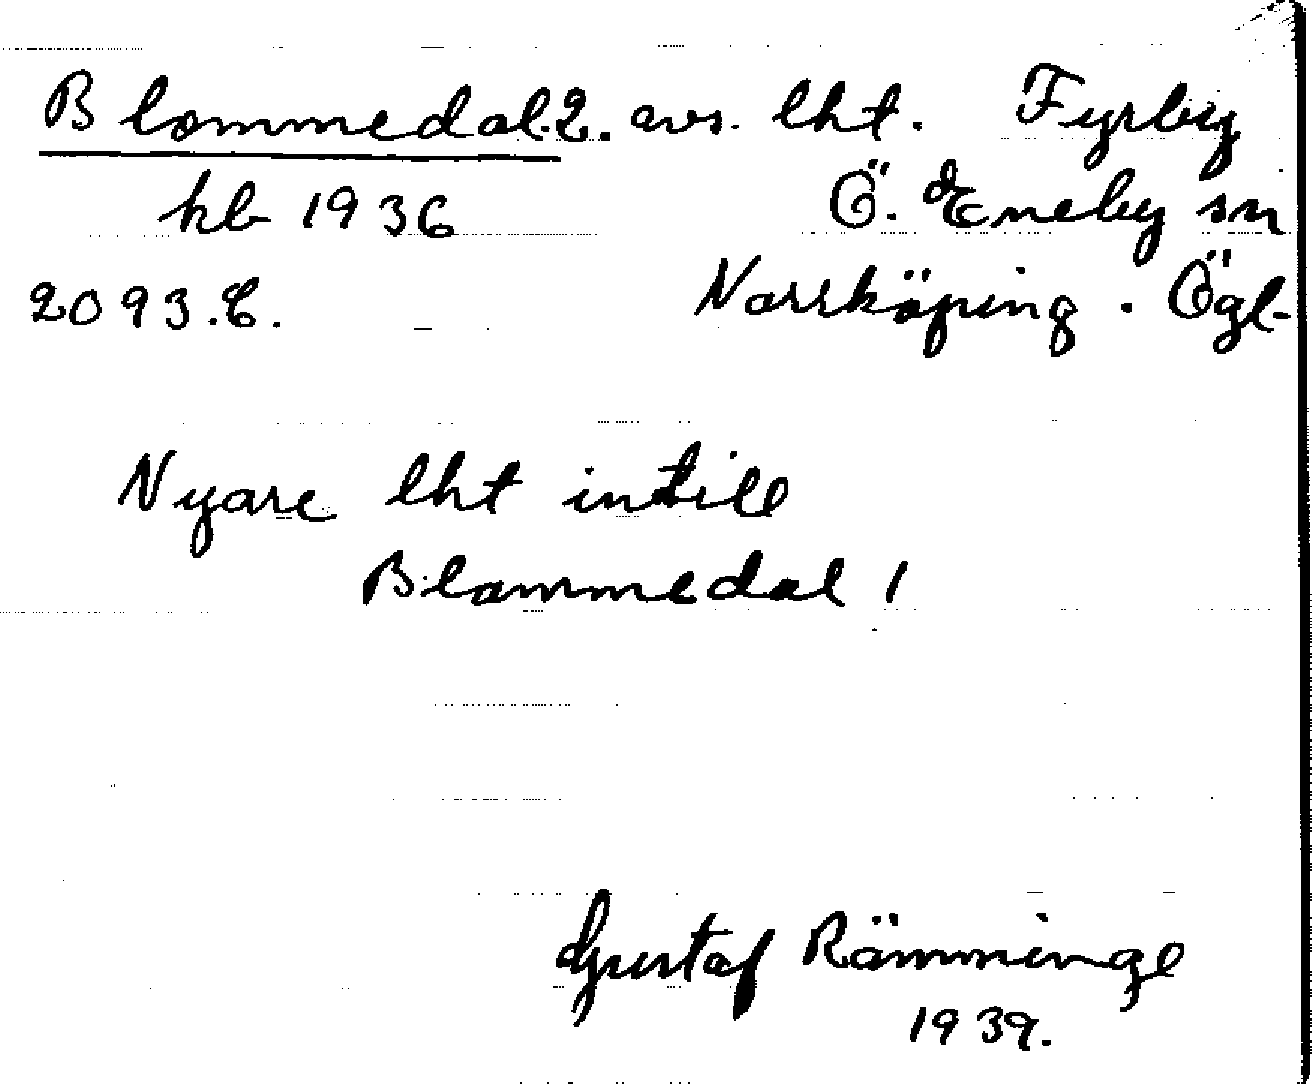 Blommedal. 2. avs. lht. Fyrby
kb 1936 Ö. Eneby sn
2093. C. Norrköping. Ögl.
Nyare lht intill
Blommedal 1
Gustaf Rämminge
1939.